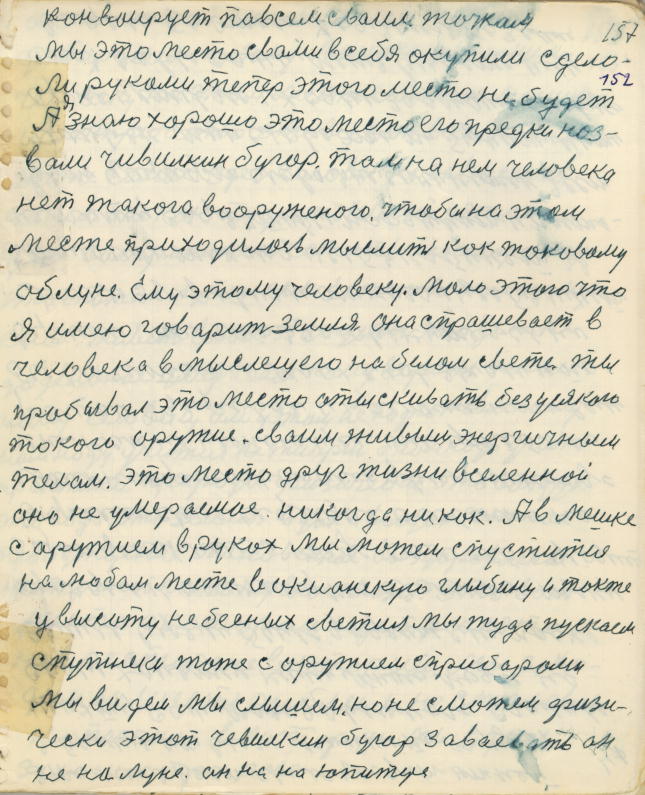 157
конвоирует павсем сваим точкам
мы это место свами всебя окупили сдела-
152
ли руками тепер этого место не будет
А я знаю хорошо это место его предки наз-
вали чивилкин бугор. там на нем человека
нет такога вооруженого, чтобы на этом
месте приходилось мыслить как таковому
облуне. Ему этому человеку. мало этого что
я имею говарит земля она спрашевает в
человека в мыслещего на белом свете. ты
пробывал это место отыскивать безусякого
такого оружие. сваим живым энергичным
телам. это место друг жизни вселенной
оно не умераемае. никогда никак. А в мешке
с аружием в руках мы можем спустится
на любам месте в окианскую глыбину и также
у высоту небесных светил мы туда пускаем
спутнеки тоже с оружием с прибарами
мы видем мы слышем, но не сможем физи-
чески этот чевилкин бугор заваевать он
не на луне. он на на юпитере